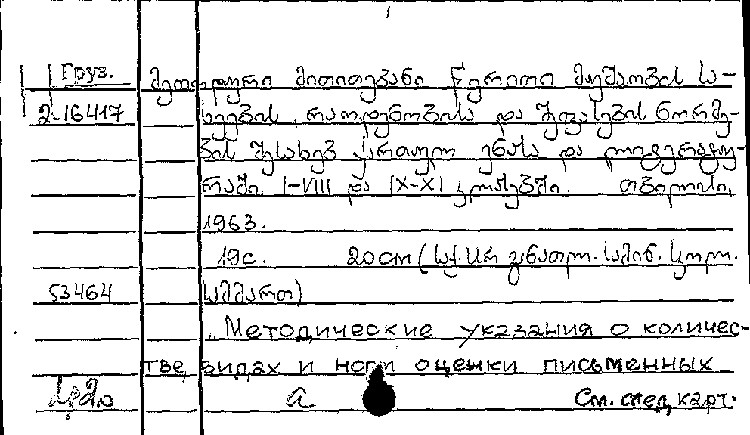 Груз. მეთოდური მითითებანი წერითი მუშაობის სა-
2-16417 ხეების, რაოდენობისა და შეფასების ნორმე-
ბის შესახებ ქართულ ენასა და ლიტერატუ-
რაში I-VIII და IX-XI კლასებში. თბილისი,
1963.
19с. 20см (საქ. სსრ განათლ. სამინ. სკოლ.
53464 სამმართ)
Методические указания о количес-
тве, видах и норм оценки письменных
а См. след. карт.